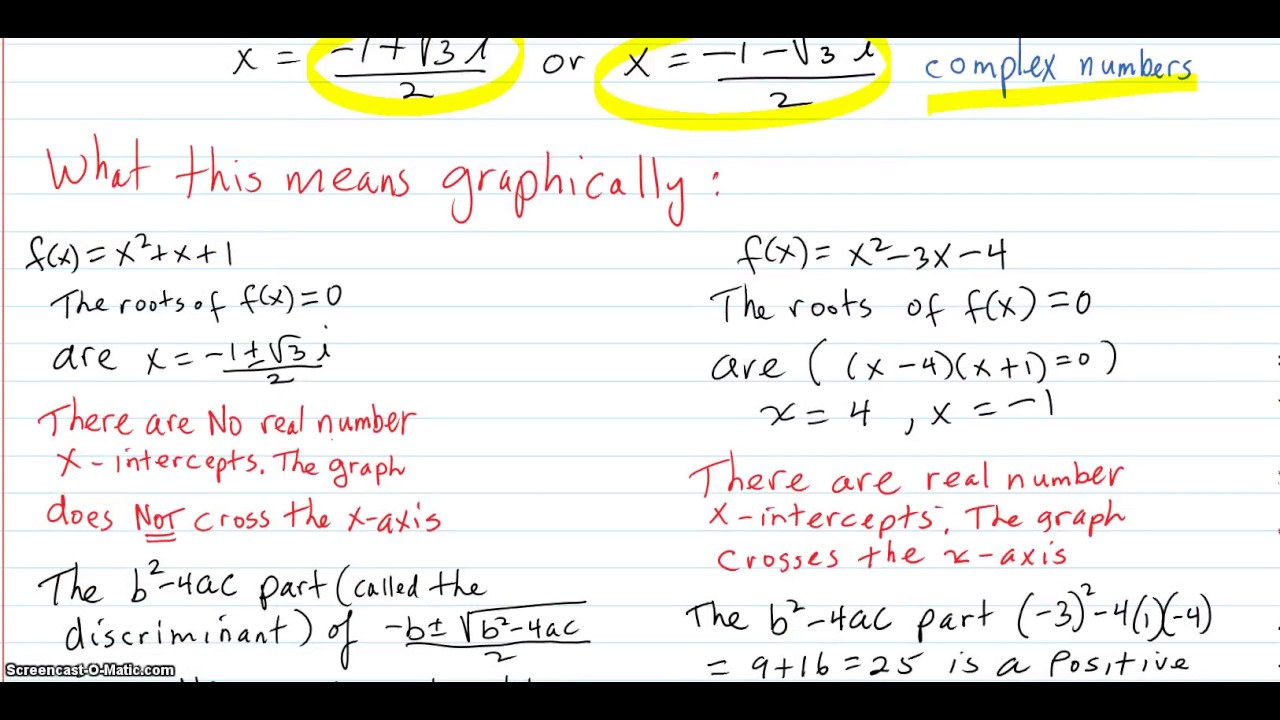 x = -1+√3 i / 2 or x = -1-√3 i / 2 complex numbers
What this means graphically:
f(x) = x²+x+1
The roots of f(x)=0
are x = -1±√3 i / 2
There are No real number
x-intercepts. The graph
does NOT cross the x-axis
The b²-4ac part (called the
discriminant) of -b±√b²-4ac / 2
f(x) = x²-3x-4
The roots of f(x)=0
are ((x-4)(x+1)=0)
x = 4, x = -1
There are real number
x-intercepts. The graph
crosses the x-axis
The b²-4ac part (-3)²-4(1)(-4)
= 9+16=25 is a positive
Screencast-O-Matic.com